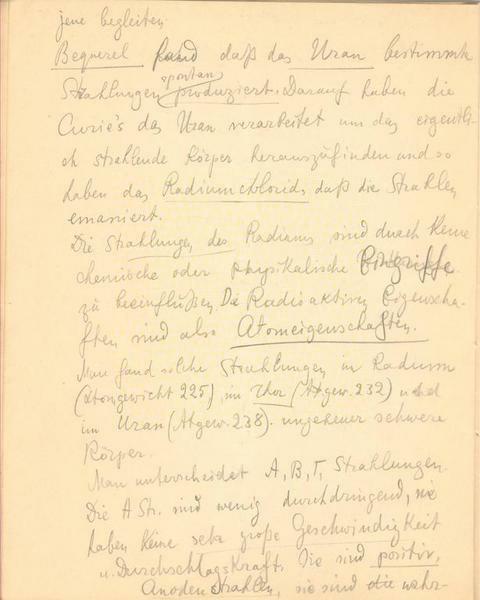 jene begleiten.
Bequerel fand daß das Uran bestimmte
Strahlungen spontan produziert. Darauf haben die
Curie's das Uran verarbeitet um das eigentli-
ch strahlende Körper herauszufinden und so
haben das Radiumchlorid, daß die Strahlen
emaniert.
Die Strahlungen des Radiums sind durch keine
chemische oder physikalische Eingriffe
zu beeinflußen. Die Radioaktiven Eigenscha-
ften sind also Atomeigenschaften.
Man fand solche Strahlungen in Radium
(Atongewicht 225), im Thor (Atgew. 232) und
im Uran (Atgew. 238). ungeheuer schwere
Körper.
Man unterscheidet A, B, Γ, Strahlungen
Die A Str. sind wenig durchdringend, sie
haben keine sehr große Geschwindigkeit
u. Durchschlagskraft. Sie sind positiv,
Anodenstrahlen, sie sind die wahr-